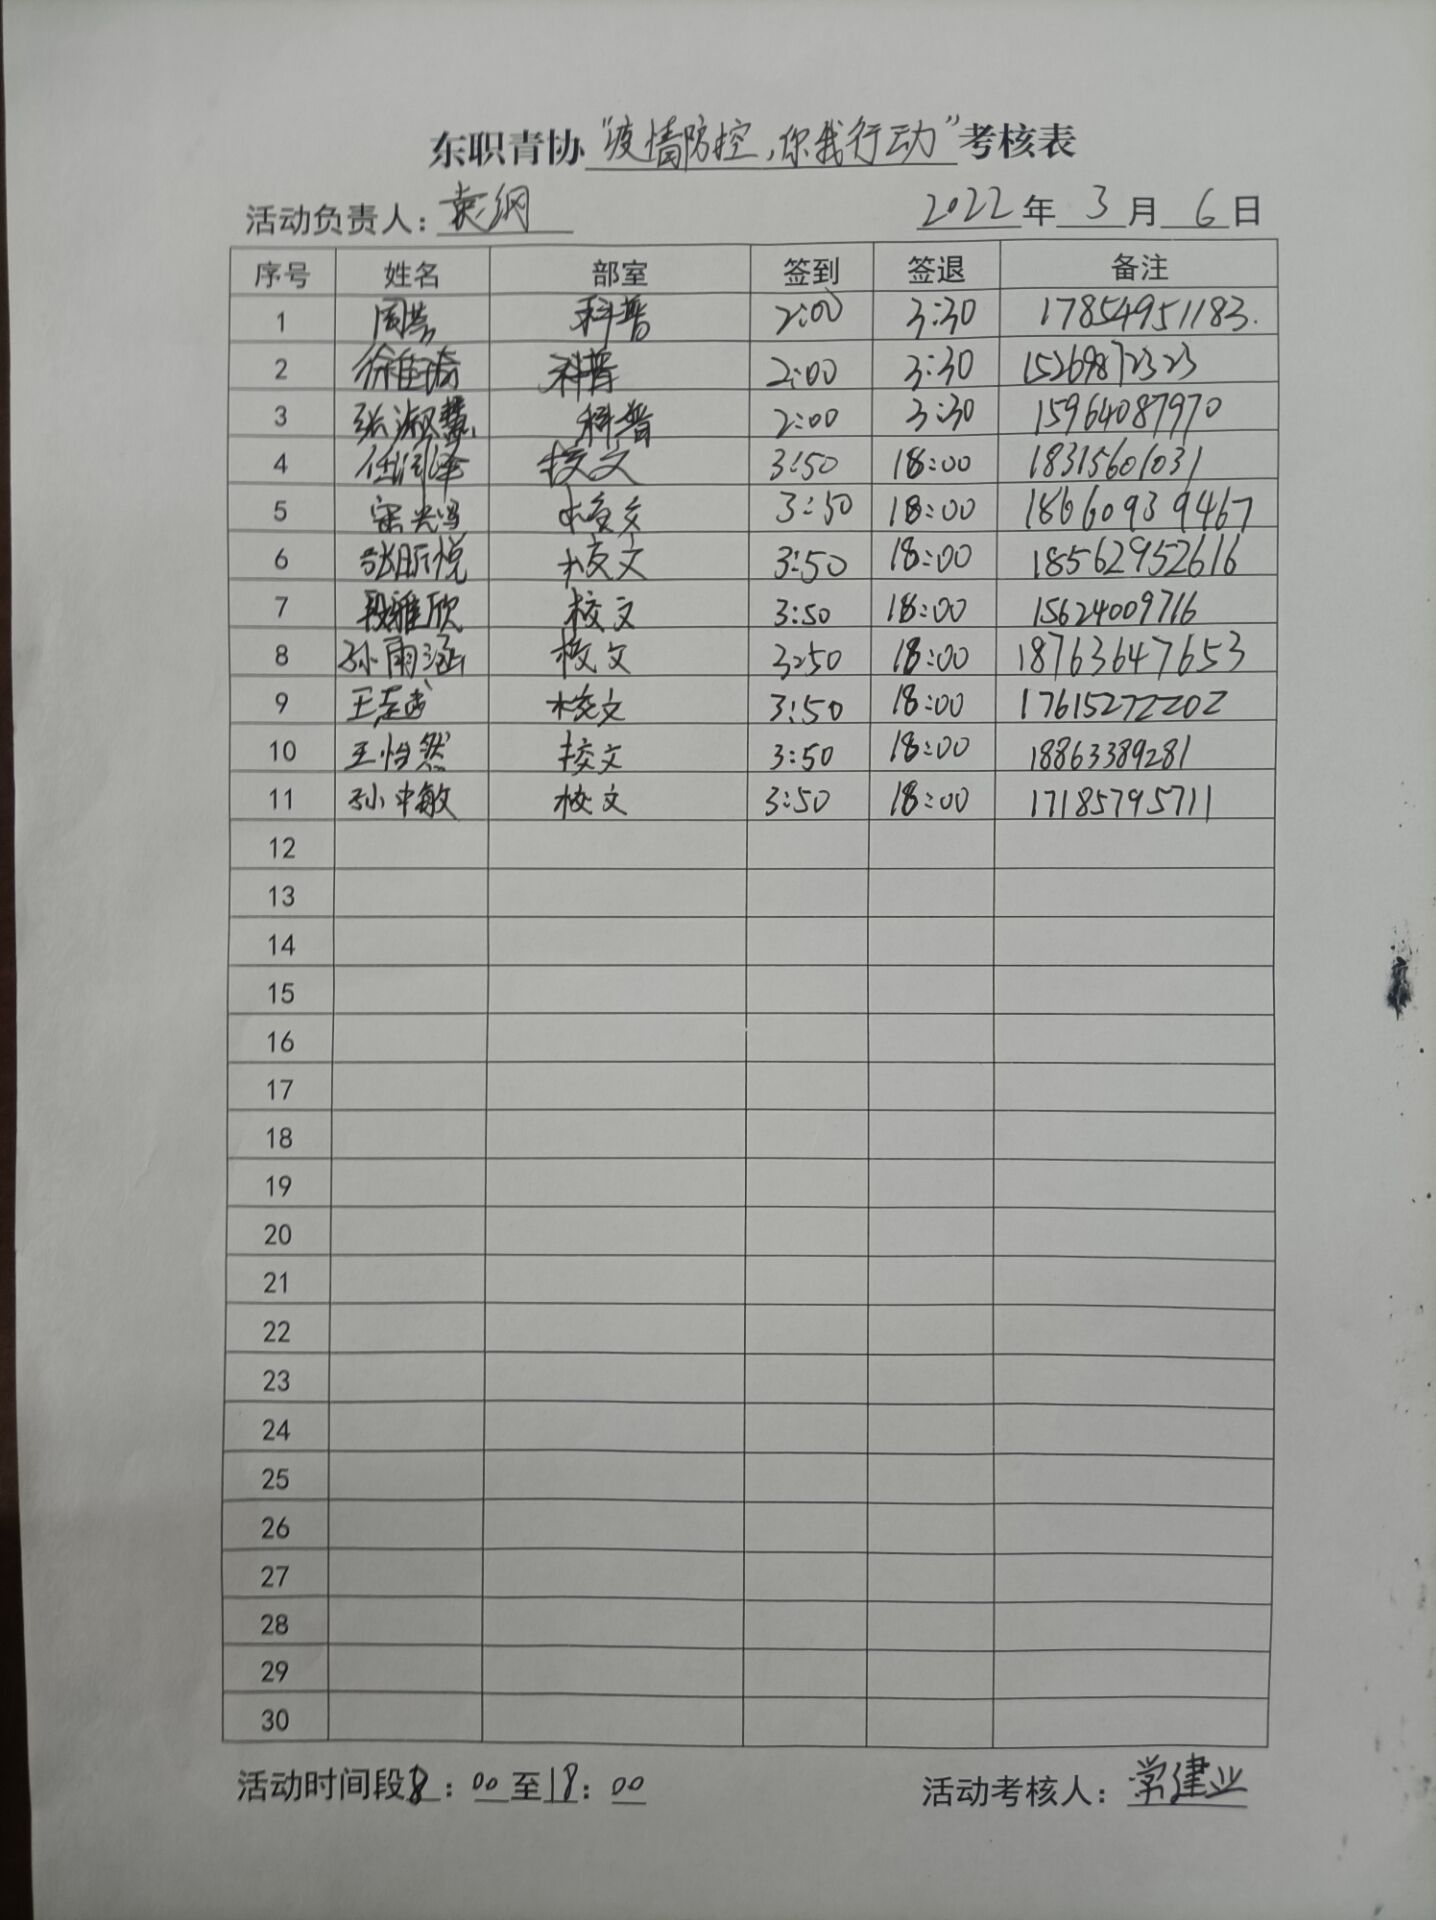 东职青协“疫情防控，你我行动”考核表
活动负责人：袁纲 2022年3月6日
序号 姓名 部室 签到 签退 备注
1 科普 2:00 3:30 17854951183.
2 科普 2:00 3:30 15269872323
3 张淑慧 科普 2:00 3:30 15964087970
4 任润泽 校文 3:50 18:00 18315601031
5 校文 3:50 18:00 18660939467
6 张昕悦 校文 3:50 18:00 18562952616
7 段雅欣 校文 3:50 18:00 15624009716
8 孙雨涵 校文 3:50 18:00 18763647653
9 校文 3:50 18:00 17615272202
10 王怡然 校文 3:50 18:00 18863389281
11 孙中敏 校文 3:50 18:00 17185795711
12
13
14
15
16
17
18
19
20
21
22
23
24
25
26
27
28
29
30
活动时间段8：00至18：00 活动考核人：常建业